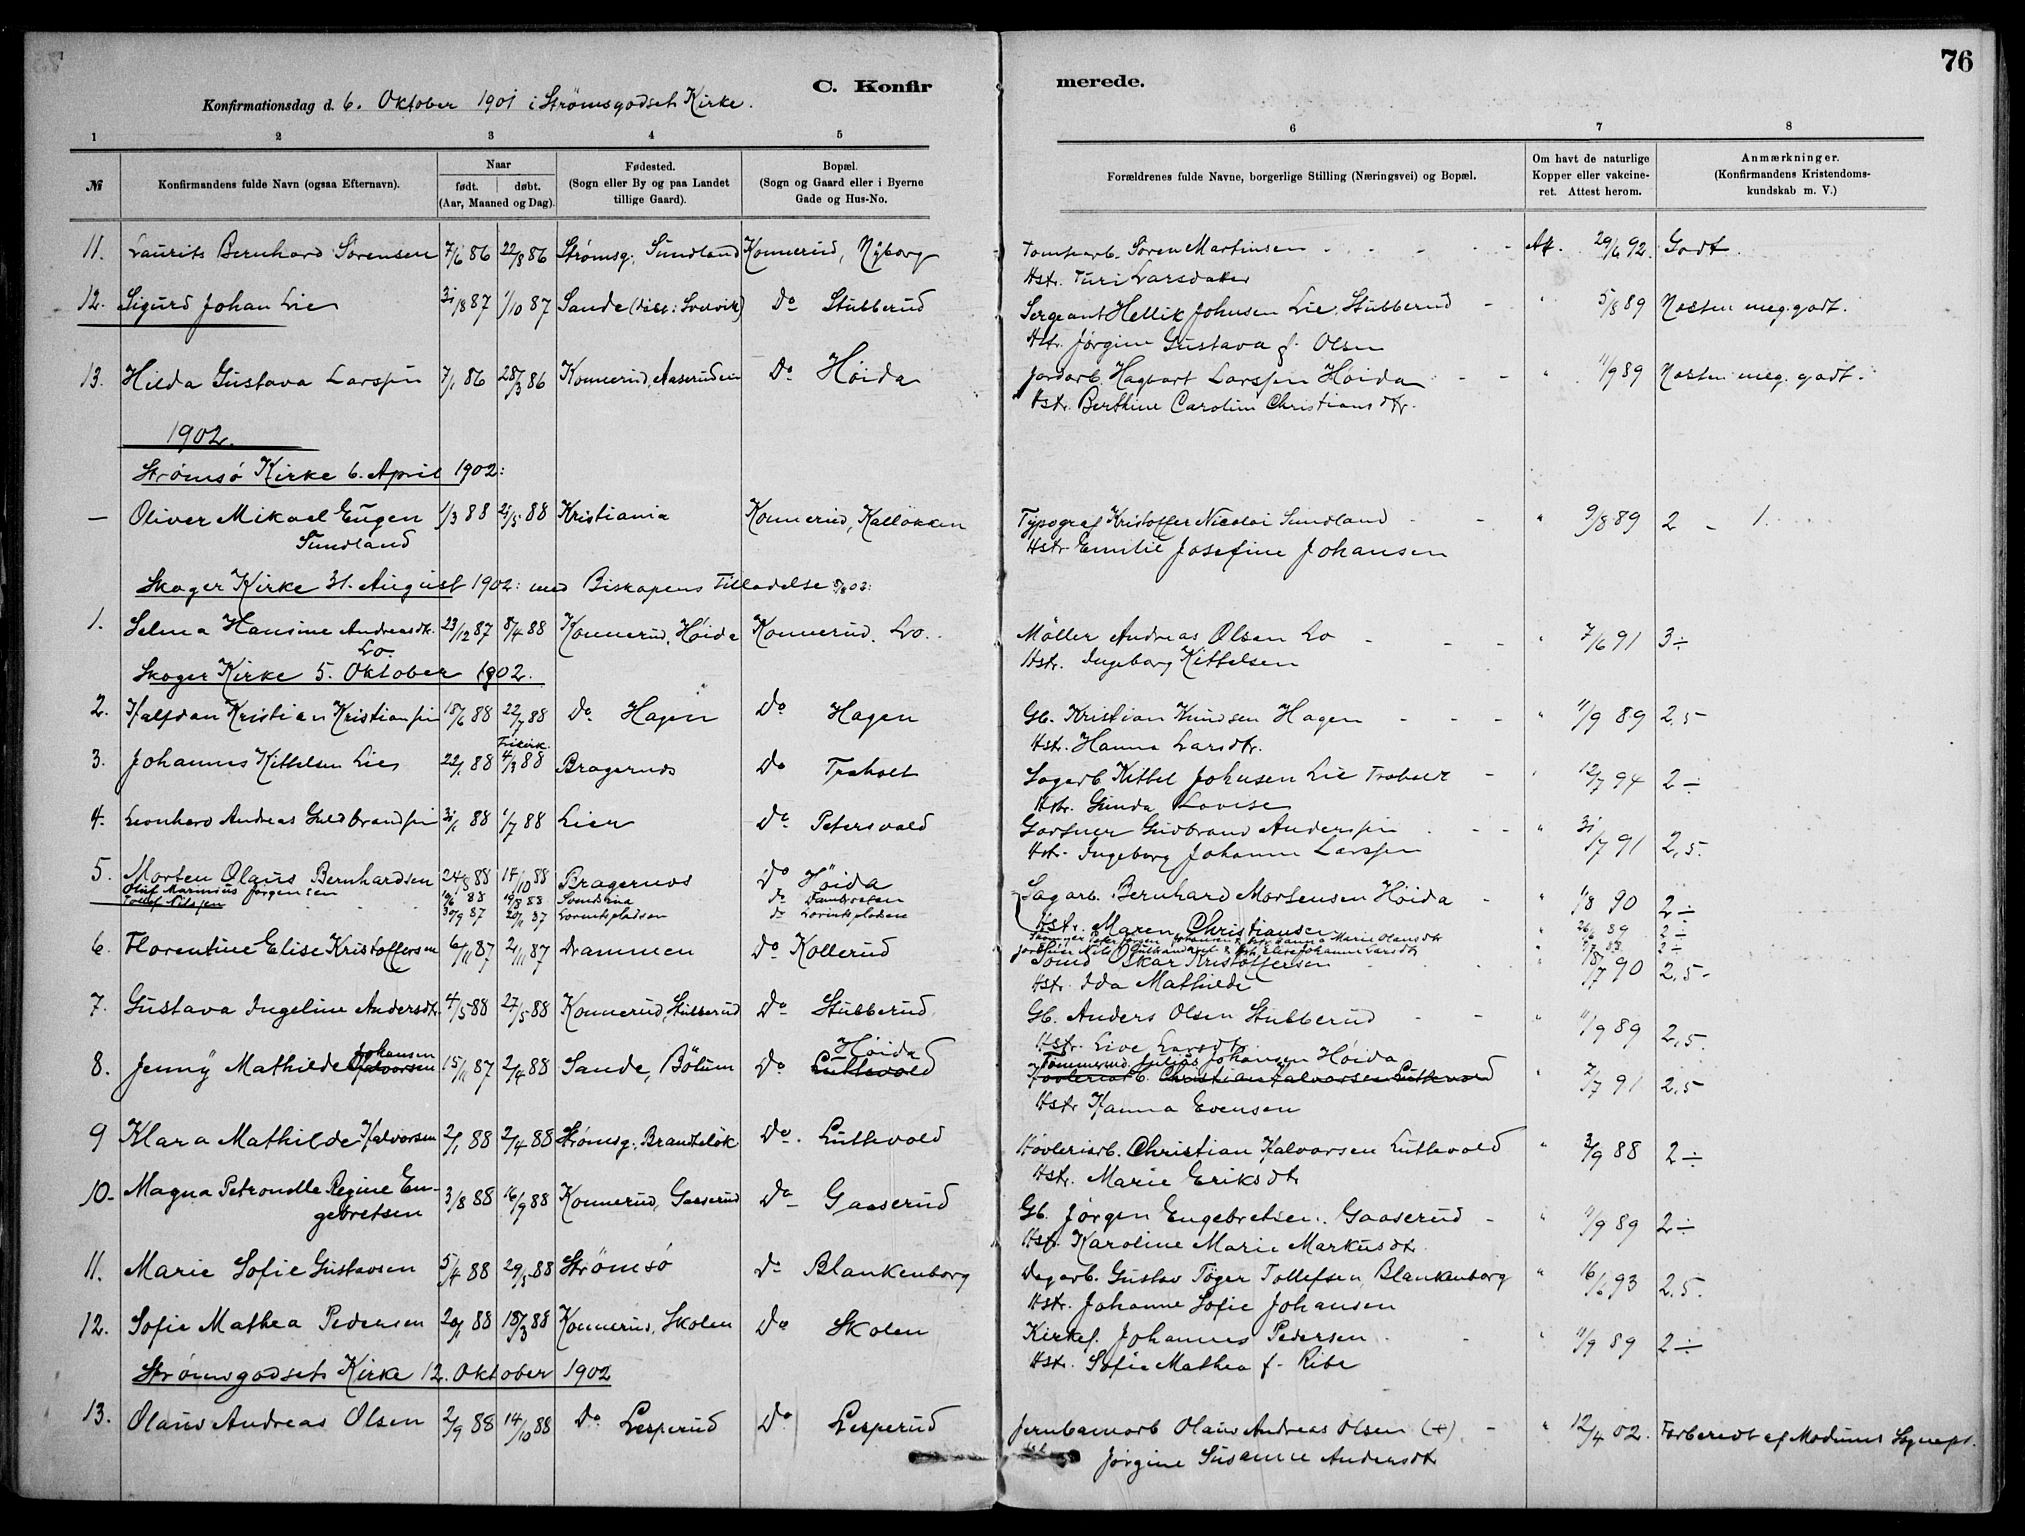 76
C. Konfirmerede.
Konfirmationsdag d. 6. Oktober 1901 i Strømsgodsets Kirke.
1 2 3 4 5 6 7 8
№
Konfirmandens fulde Navn (ogsaa Efternavn).
Naar
født. døbt.
(Aar, Maaned og Dag).
Fødested.
(Sogn eller By og paa Landet
tillige Gaard).
Bopæl.
(Sogn og Gaard eller i Byerne
Gade og Hus-No.
Forældrenes fulde Navne, borgerlige Stilling (Næringsvei) og Bopæl.
Om havt de naturlige
Kopper eller vakcine-
ret. Attest herom.
Anmærkninger.
(Konfirmandens Kristendoms-
kundskab m. V.)
11. Laurits Bernhard Sørensen 7/6 86 22/8 86 Strømsg. Sundland Konnerud, Nyborg Tomtearb. Søren Martinsen At. 29/6 92. Godt.
Hstr. Turi Larsdatter
12. Sigurd Johan Lie 31/8 87 1/10 87 Sande (Svelvik) Do Stubberud Sergeant Hellik Johnsen Lie, Stubberud " 5/8 89 Næsten meg. godt.
Hstr. Jørgine Gustava f. Olsen
13. Hilda Gustava Larssen 7/1 86 28/3 86 Konnerud, Aaserudeie Do Høida Jordarb. Hagbart Larssen Høida " 11/9 89 Næsten meg. godt.
Hstr. Berthine Caroline Christiansdtr.
1902.
Strømsø Kirke 6. April 1902:
— Oliver Mikael Eugen 1/3 88 21/5 88 Kristiania Konnerud, Kalløkken Typograf Kristoffer Nicolai Sundland " 9/8 89 2 - 1.
Sundland Hstr Emilie Josefine Johansen
Skoger Kirke 31. August 1902: med Biskopens Tilladelse
1. Selma Hansine Andreasdtr. 23/12 87 8/4 88 Konnerud, Høida Konnerud. Lo. Møller Andreas Olsen Lo " 7/6 91 3÷
Lo. Hstr. Ingeborg Kittelsen
Skoger Kirke 5. Oktober 1902.
2. Halfdan Kristian Kristiansen 18/6 88 22/7 88 Do Hagen Do Hagen Gb. Kristian Knudsen Hagen " 11/9 89 2,5
Hstr. Hanna Larsdtr.
Frikirk.
3. Johannes Kittelsen Lie 22/1 88 4/3 88 Bragernes Do Traholt Sagarb. Kittel Johnsen Lie " 12/7 94 2÷
Hstr. Gunda Lovise
4. Leonhard Andreas Guldbrandsen 31/1 88 1/7 88 Lier Do Petersvold Gartner Gudbrand Anderssen " 31/7 91 2,5.
Hstr. Ingeborg Johanne Larssen
5. Morten Olaus Bernhardsen 24/8 88 14/10 88 Bragernes Do Høida Sagarb. Bernhard Mortensen Høida " 1/8 90 2÷
Oluf Marinius Jørgensen 88 88 do
Tollef Nilssen 30/9 87 20/11 87 Lovikspladsen do
Hstr. Maren Christiansen
Anna Marie Olausdtr " 26/6 89 2÷
Elise Johanne Larsdtr " 88 2÷
6. Florentine Elise Kristoffersen 6/11 87 2/11 87 Drammen Do Kollerud Oskar Kristoffersen 90 2,5-
Hstr. Ida Mathilde
7. Gustava Ingeline Andersdtr. 4/5 88 27/5 88 Konnerud, Stubberud Do Stubberud Gb. Anders Olsen Stubberud " 11/9 89 2,5.
Hstr. Live Larsdtr.
8. Jenny Mathilde Halvorsen Johansen 15/11 87 2/4 88 Sande, Bølum Do Luttevold Høida Julius Johansen Høida " 7/7 91 2,5
Høvleriarb. Christian Halvorsen Luttevold
Hstr Hanna Evensen
9 Klara Mathilde Halvorsen 2/1 88 2/4 88 Strømsg. Brandteløk Do. Luttevold Høvleriarb. Christian Halvorsen Luttevold " 3/9 88 2÷
Hstr. Marie Eriksdtr
10. Magna Petronelle Regine En- 3/8 88 16/9 88 Konnerud, Gaaserud Do Gaaserud Gb. Jørgen Engebretsen. Gaaserud " 11/9 89 2÷
gebretsen Hstr. Karoline Marie Markusdtr
11. Marie Sofie Gustavsen 5/4 88 29/5 88 Strømsø Do Blankenborg Dagarb. Gustav Töger Tollefsen, Blankenborg " 16/6 93 2.5.
Hstr. Johanne Sofie Johansen
12. Sofie Mathea Pedersen 20/1 88 18/3 88 Konnerud, Skolen Do Skolen Kirkes. Johannes Pedersen " 11/9 89 2÷
Hstr. Sofie Mathea f. Ribe
Strømsgodsets Kirke 12. Oktober 1902
13. Olaus Andreas Olsen 2/9 88 14/10 88 Do Lesperud Do Lesperud Jernbanearb Olaus Andreas Olsen (+) " 12/4 02. Forberedt af Modums Sognepr.
Jørgine Susanne Andersdtr